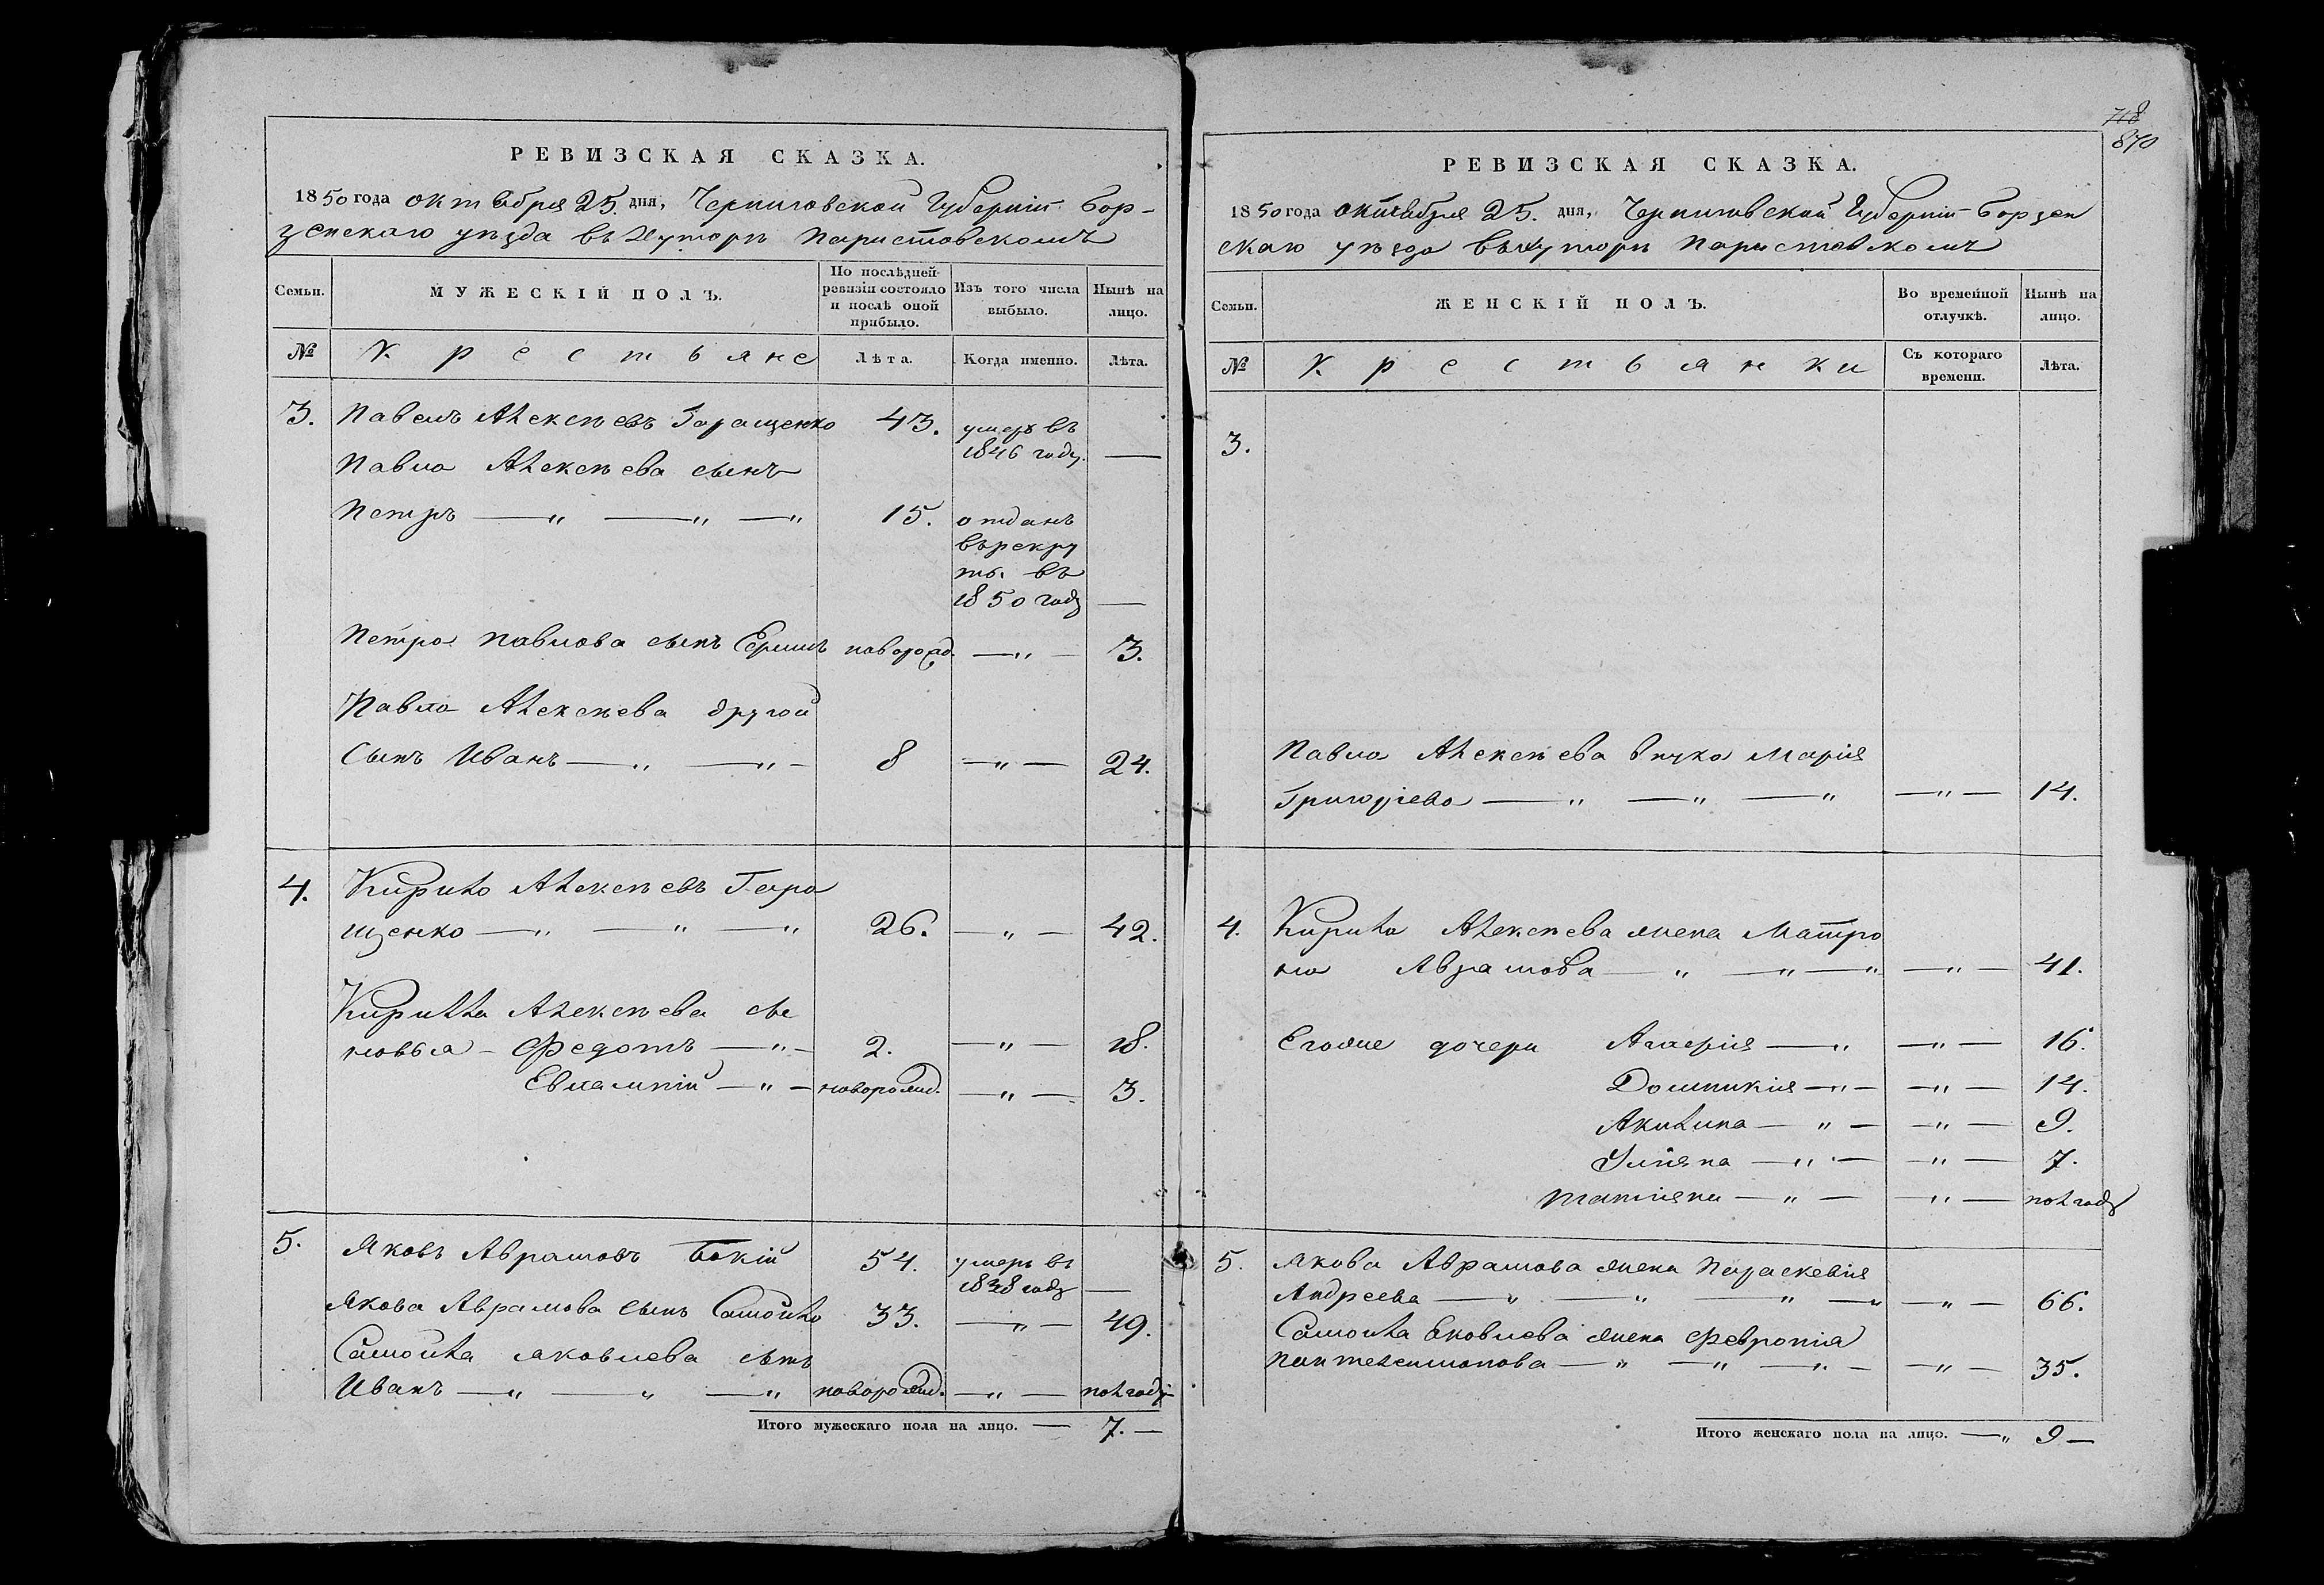 РЕВИЗСКАЯ СКАЗКА.
1850 года октября 25. дня, Черниговской Губерніи Бор-
зенскаго уѣзда въ Хуторѣ Паристовскомъ
Семьи.
МУЖЕСКІЙ ПОЛЪ.
По послѣдней ревизіи состояло и послѣ оной прибыло.
Изъ того числа выбыло.
Нынѣ на лицо.
№ Крестьяне Лѣта. Когда именно. Лѣта.
3. Павелъ Алексѣевъ Геращенко 43. умеръ въ
1846 году. —
Павла Алексѣева сынъ
Петръ — „ — „ — „ 15. отданъ
въ рекру
ты. въ
1850 году —
Петра Павлова сынъ новорожд. — „ — 3.
Павла Алексѣева другой
Сынъ Иванъ — „ — „ — 8 — „ — 24.
4. Кирило Алексѣевъ Гера
щенко — „ — „ — „ 26. — „ — 42.
Кирилла Алексѣева сы
новья - Федотъ — „ — 2. — „ — 18.
Евлампій — „ — новорожд. — „ — 3.
5. Яковъ Аврамовъ Бокій 54. умеръ въ
1838 году —
Якова Аврамова сынъ Самойло 33. — „ — 49.
Самойла Яковлева сынъ
Иванъ — „ — „ — „ новорожд. — „ — полгода
Итого мужескаго пола на лицо. — 7. —
718
870
РЕВИЗСКАЯ СКАЗКА.
1850 года октября 25. дня, Черниговской Губерніи Борзен
скаго уѣзда въ хуторѣ Паристовскомъ
Семьи.
ЖЕНСКІЙ ПОЛЪ.
Во временной отлучкѣ.
Нынѣ на лицо.
№ Крестьянки Съ котораго времени. Лѣта.
3.
Павла Алексѣева внучка Марія
Григорьева — „ — „ — „ — „ — 14.
4. Кирила Алексѣева жена Матро
на Аврамова — „ — „ — „ — „ — 41.
Егоже дочери Гликерія — „ — „ — 16.
Домникія — „ — — „ — 14.
Акилина — „ — — „ — 9.
Уліяна — „ — — „ — 7.
Татіяна — „ — — „ — полгода
5. Якова Аврамова жена Параскевія
Андреева — „ — „ — „ — „ — „ — 66.
Самойла Яковлева жена Февронія
Пантелеимонова — „ — „ — „ — — „ — 35.
Итого женскаго пола на лицо. — „ 9 —